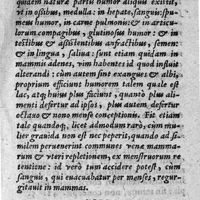 quidem naturæ parte humor aliquis existit,
vt in ossibus, medulla: in hepate, sanguis: spu-
meus humor, in carne pulmonis: & in articu-
lorum compagibus, glutinosus humor: & in
testibus & assistentibus anfractibus, semen:
& in lingua, saliua: sunt etiam quidam in
mammis adenes, vim habentes id quod influit
alterandi: cùm autem sint exangues & albi,
proprium efficiunt humorem talem quale est
lac, atque huius plus faciunt, quando plus ali-
menti defertur ad ipsos, plus autem defertur
octauo & nono mense conceptionis. Fit etiam
tale quandoque, licet admodum rarò, cùm mu-
lier grauida non est nec peperit, quando ad si-
milem peruenerint communes vena mamma-
rum & vteri repletionem, ex menstruorum re-
tentione: id verò tum accidere potest, cùm
sanguis, qui euacuabatur per menses, regur-
gitauit in mammas.